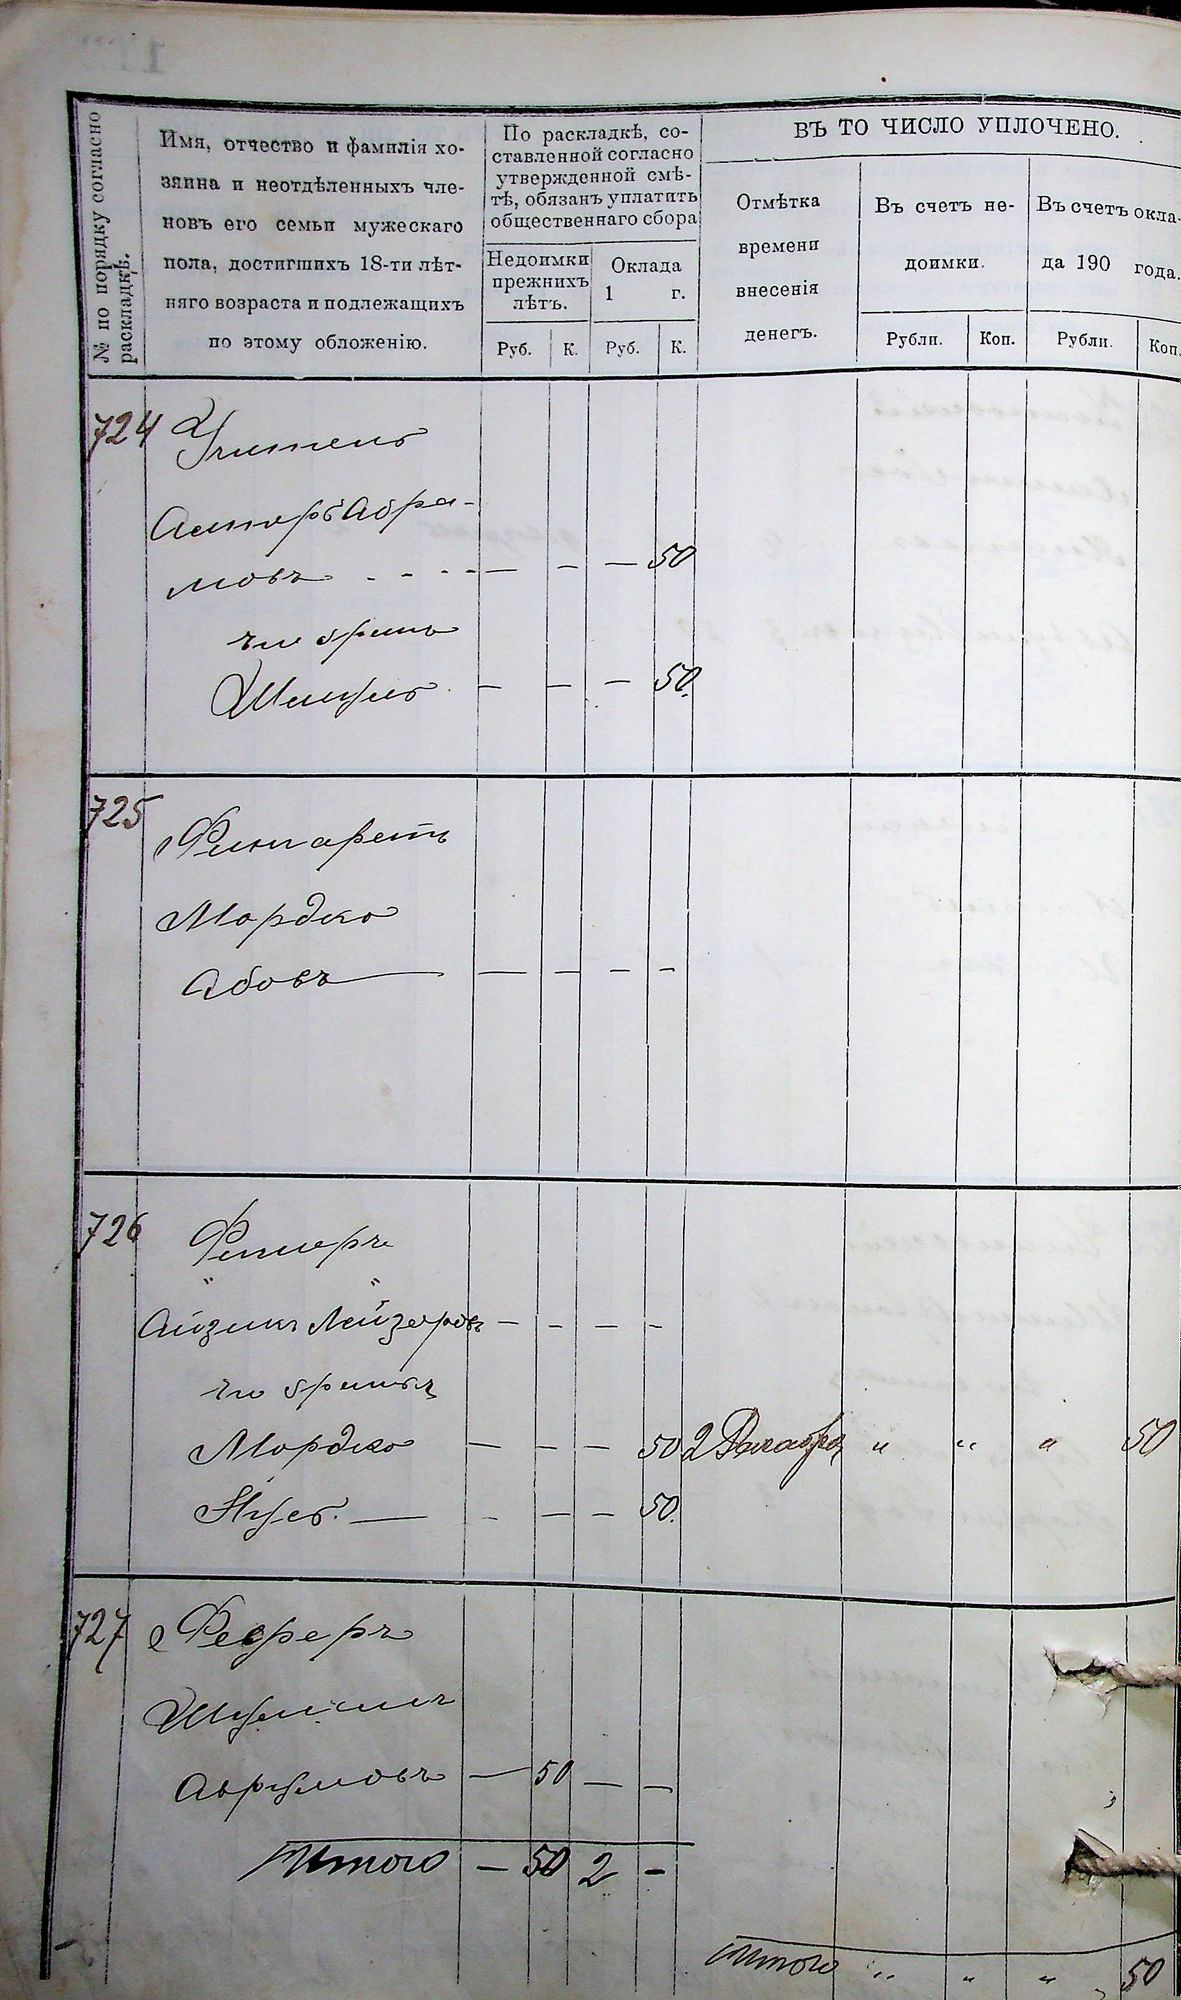 № по порядку согласно
раскладкѣ.
Имя, отчество и фамилія хо-
зяина и неотдѣленныхъ чле-
новъ его семьи мужескаго
пола, достигшихъ 18-ти лѣт-
няго возраста и подлежащихъ
по этому обложенію.
По раскладкѣ, со-
ставленной согласно
утвержденной смѣ-
тѣ, обязанъ уплатить
общественнаго сбора
Недоимки
прежнихъ
лѣтъ.
Оклада
1 г.
Руб. К. Руб. К.
ВЪ ТО ЧИСЛО УПЛОЧЕНО.
Отмѣтка
времени
внесенія
денегъ.
Въ счетъ не-
доимки.
Рубли. Коп.
Въ счетъ окла-
да 190 года.
Рубли. Коп.
724 Учитель
Астеръ Абра-
мовъ - - - - — - — 50
его братъ
Шмуль - — - — 50.
725 Фингаретъ
Мордко
Абовъ — — — — —
726 Фишеръ
Айзикъ Лейзеровъ - - - -
его братья
Мордко — - — 50 2 Декабря " " " 50
Нусъ. — - — — 50.
727 Феферъ
Шулимъ
Аврумовъ — 50 — —
Итого — 50 2 -
Итого " " " 50